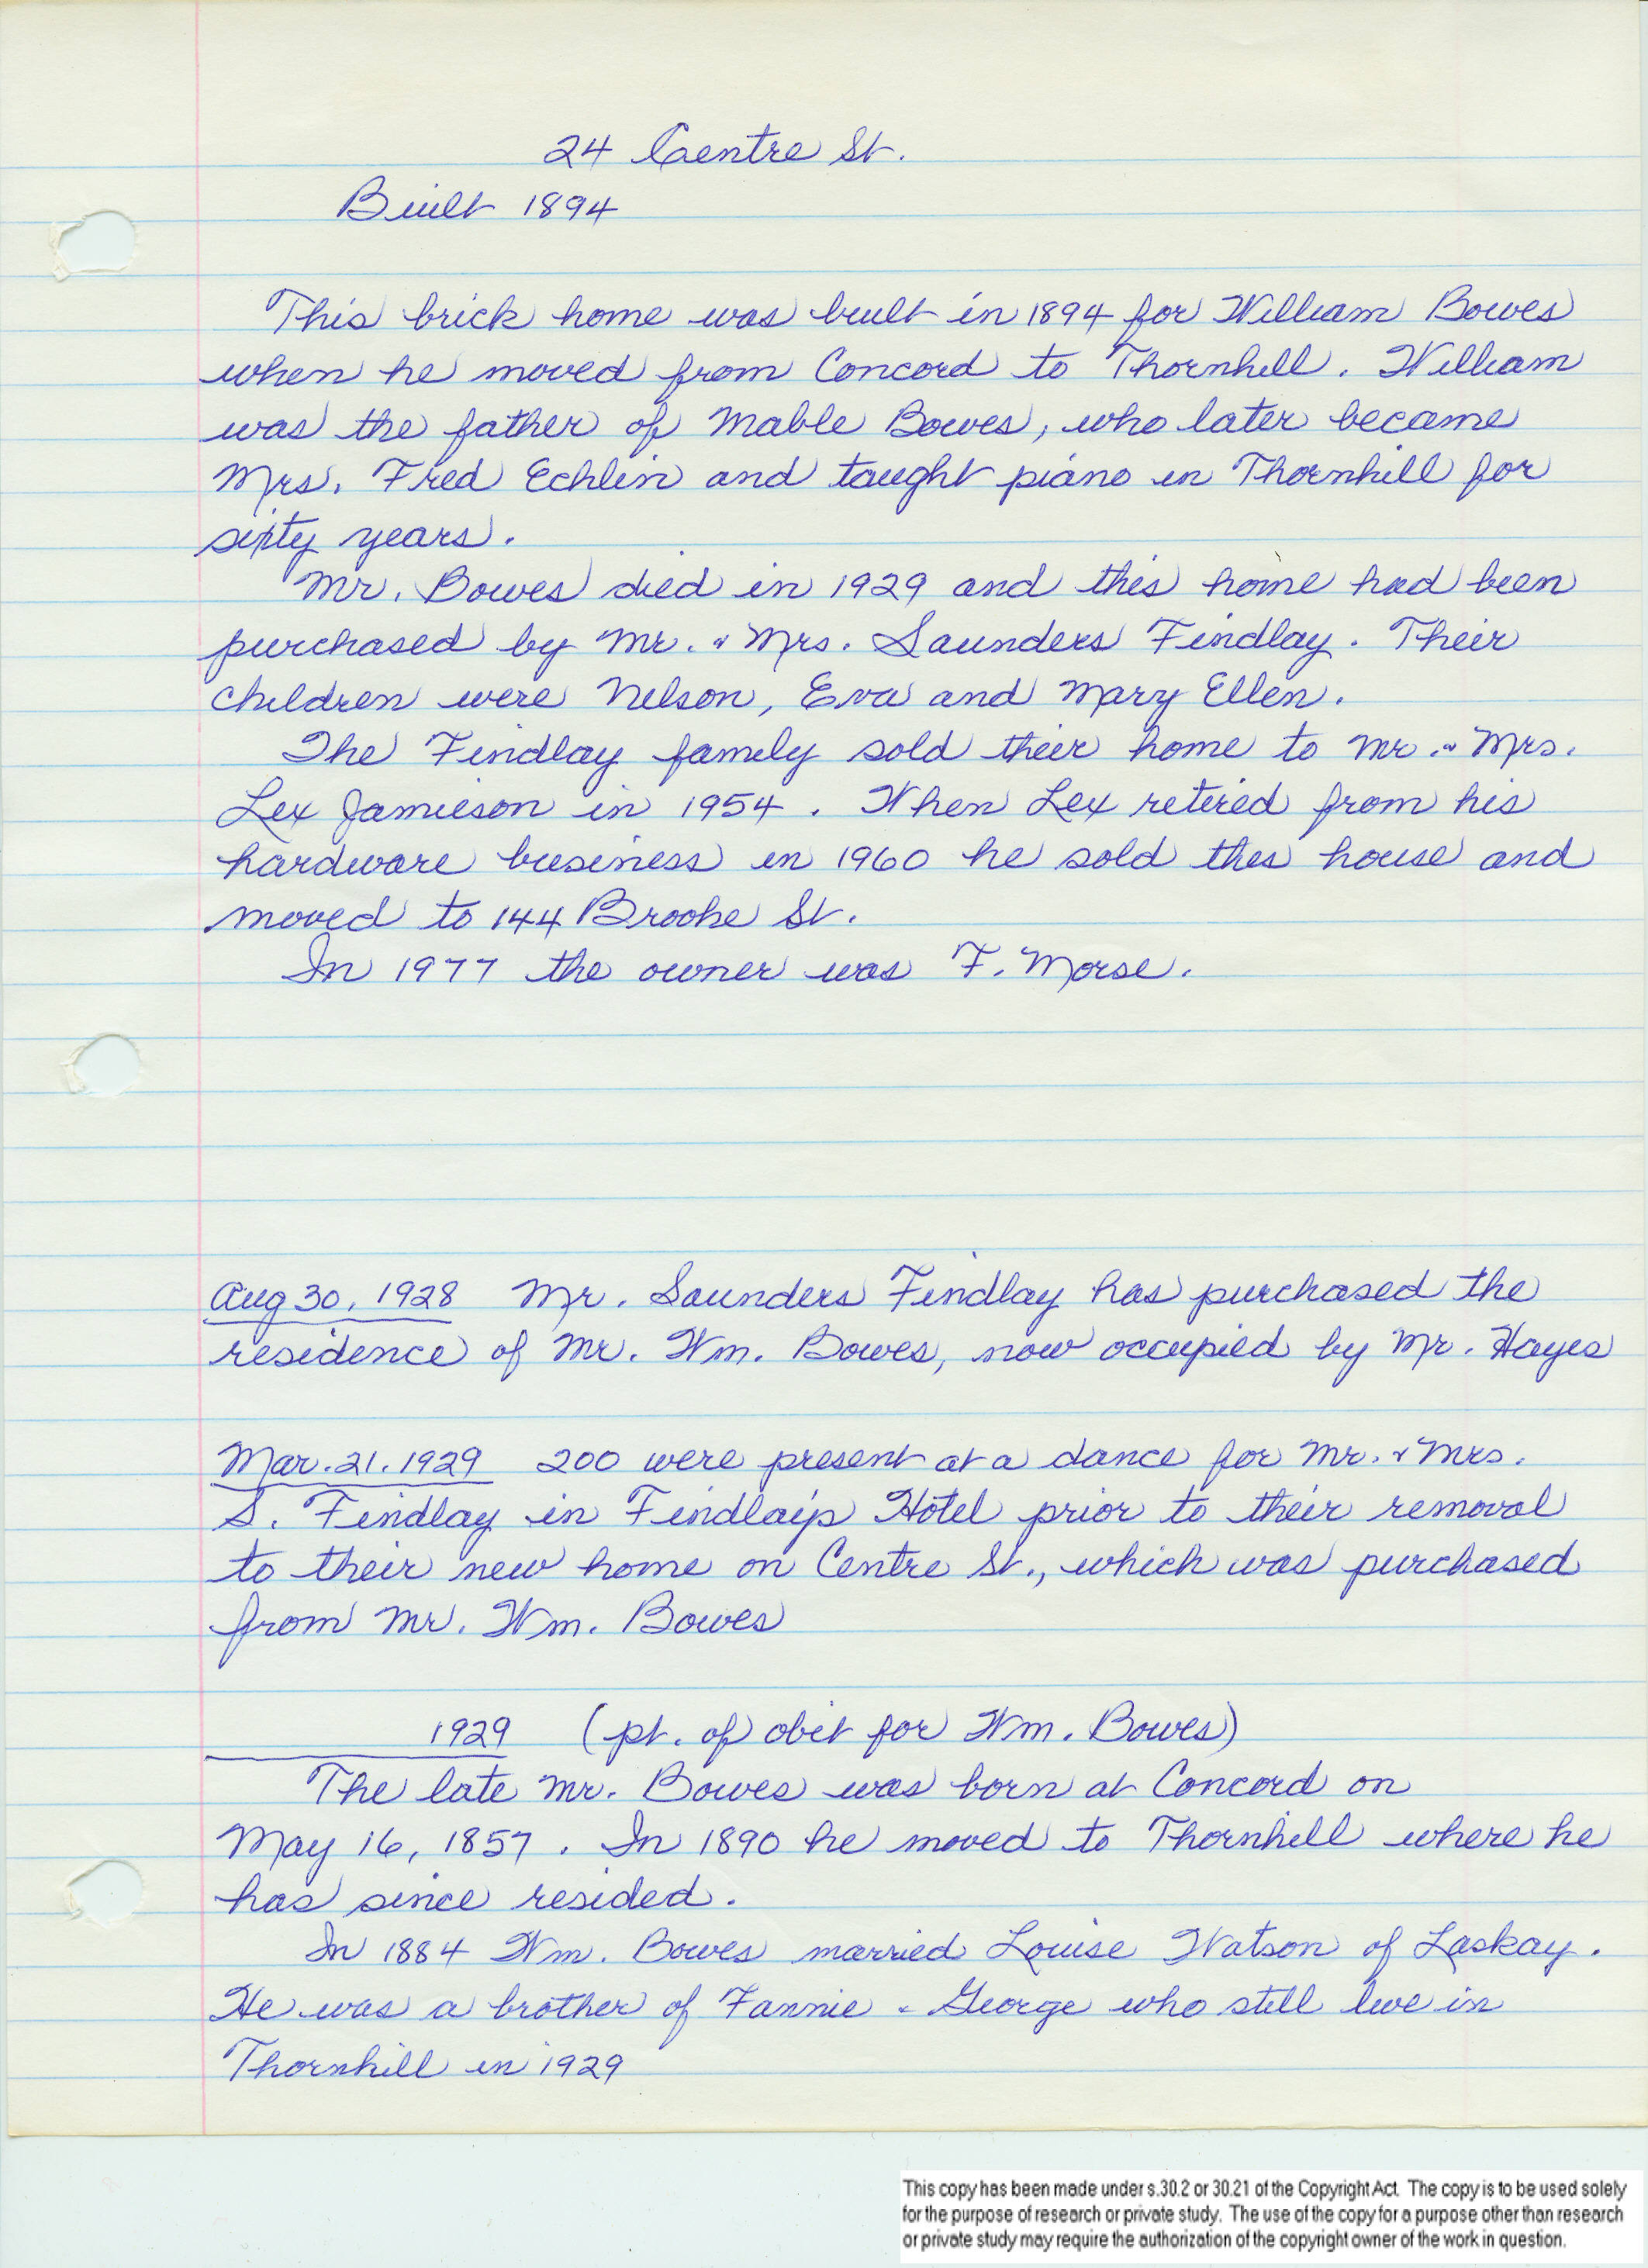 24 Centre St.
Built 1894
This brick home was built in 1894 for William Bowes
when he moved from Concord to Thornhill. William
was the father of Mable Bowes, who later became
Mrs. Fred Echlin and taught piano in Thornhill for
sixty years.
Mr. Bowes died in 1929 and this home had been
purchased by Mr. & Mrs. Saunders Findlay. Their
children were Nelson, Eva and Mary Ellen.
The Findlay family sold their home to Mr. & Mrs.
Lex Jamieson in 1954. When Lex retired from his
hardware business in 1960 he sold this house and
moved to 144 Brooke St.
In 1977 the owner was F. Morse.
Aug 30, 1928 Mr. Saunders Findlay has purchased the
residence of Mr. Wm. Bowes, now occupied by Mr. Hayes
Mar. 21. 1929 200 were present at a dance for Mr. & Mrs.
S. Findlay in Findlay's Hotel prior to their removal
to their new home on Centre St., which was purchased
from Mr. Wm. Bowes
1929 (pt. of obit for Wm. Bowes)
The late Mr. Bowes was born at Concord on
May 16, 1857. In 1890 he moved to Thornhill where he
has since resided.
In 1884 Wm. Bowes married Louise Watson of Laskay.
He was a brother of Fannie & George who still live in
Thornhill in 1929
This copy has been made under s.30.2 or 30.21 of the Copyright Act. The copy is to be used solely
for the purpose of research or private study. The use of the copy for a purpose other than research
or private study may require the authorization of the copyright owner of the work in question.